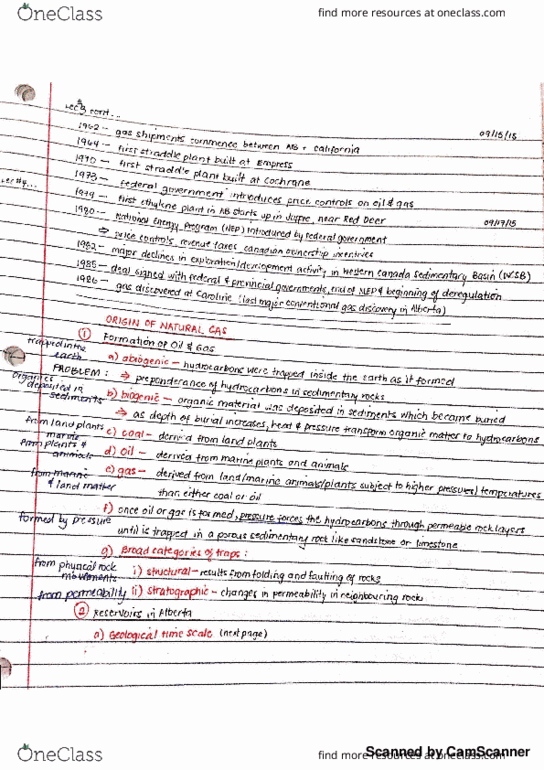 OneClass
find more resources at oneclass.com
Lec 3 cont...
09/15/15
1962 - gas shipments commence between AB & California
1964 - first straddle plant built at Empress
1970 - first straddle plant built at Cochrane
1973 - federal government introduces price controls on oil & gas
Lec #4...
1979 - first ethylene plant in AB starts up in Joffre, near Red Deer
09/17/15
1980 - National Energy Program (NEP) introduced by federal government
⇒ price controls, revenue taxes, canadian ownership incentives
1982 - major declines in exploration/development activity in Western Canada Sedimentary Basin (WCSB)
1985 - deal signed with federal & provincial governments, end of NEP & beginning of deregulation
1986 - gas discovered at Caroline (last major conventional gas discovery in Alberta)
ORIGIN OF NATURAL GAS
① Formation of Oil & Gas
trapped in the earth
a) abiogenic - hydrocarbons were trapped inside the earth as it formed
PROBLEM: ⇒ preponderance of hydrocarbons in sedimentary rocks
organics deposited in sediments
b) biogenic - organic material was deposited in sediments which became buried
⇒ as depth of burial increases, heat & pressure transform organic matter to hydrocarbons
from land plants
c) coal - derived from land plants
marine plants & animals
d) oil - derived from marine plants and animals
from marine & land matter
e) gas - derived from land/marine animals/plants subject to higher pressures/temperatures
than either coal or oil
formed by pressure
f) once oil or gas is formed, pressure forces the hydrocarbons through permeable rock layers
until is trapped in a porous sedimentary rock like sandstone or limestone
g) Broad categories of traps:
from physical rock movements
i) structural - results from folding and faulting of rocks
from permeability
ii) stratographic - changes in permeability in neighbouring rocks
② Reservoirs in Alberta
a) Geological time scale (next page)
OneClass
find more resources at oneclass.com
Scanned by CamScanner